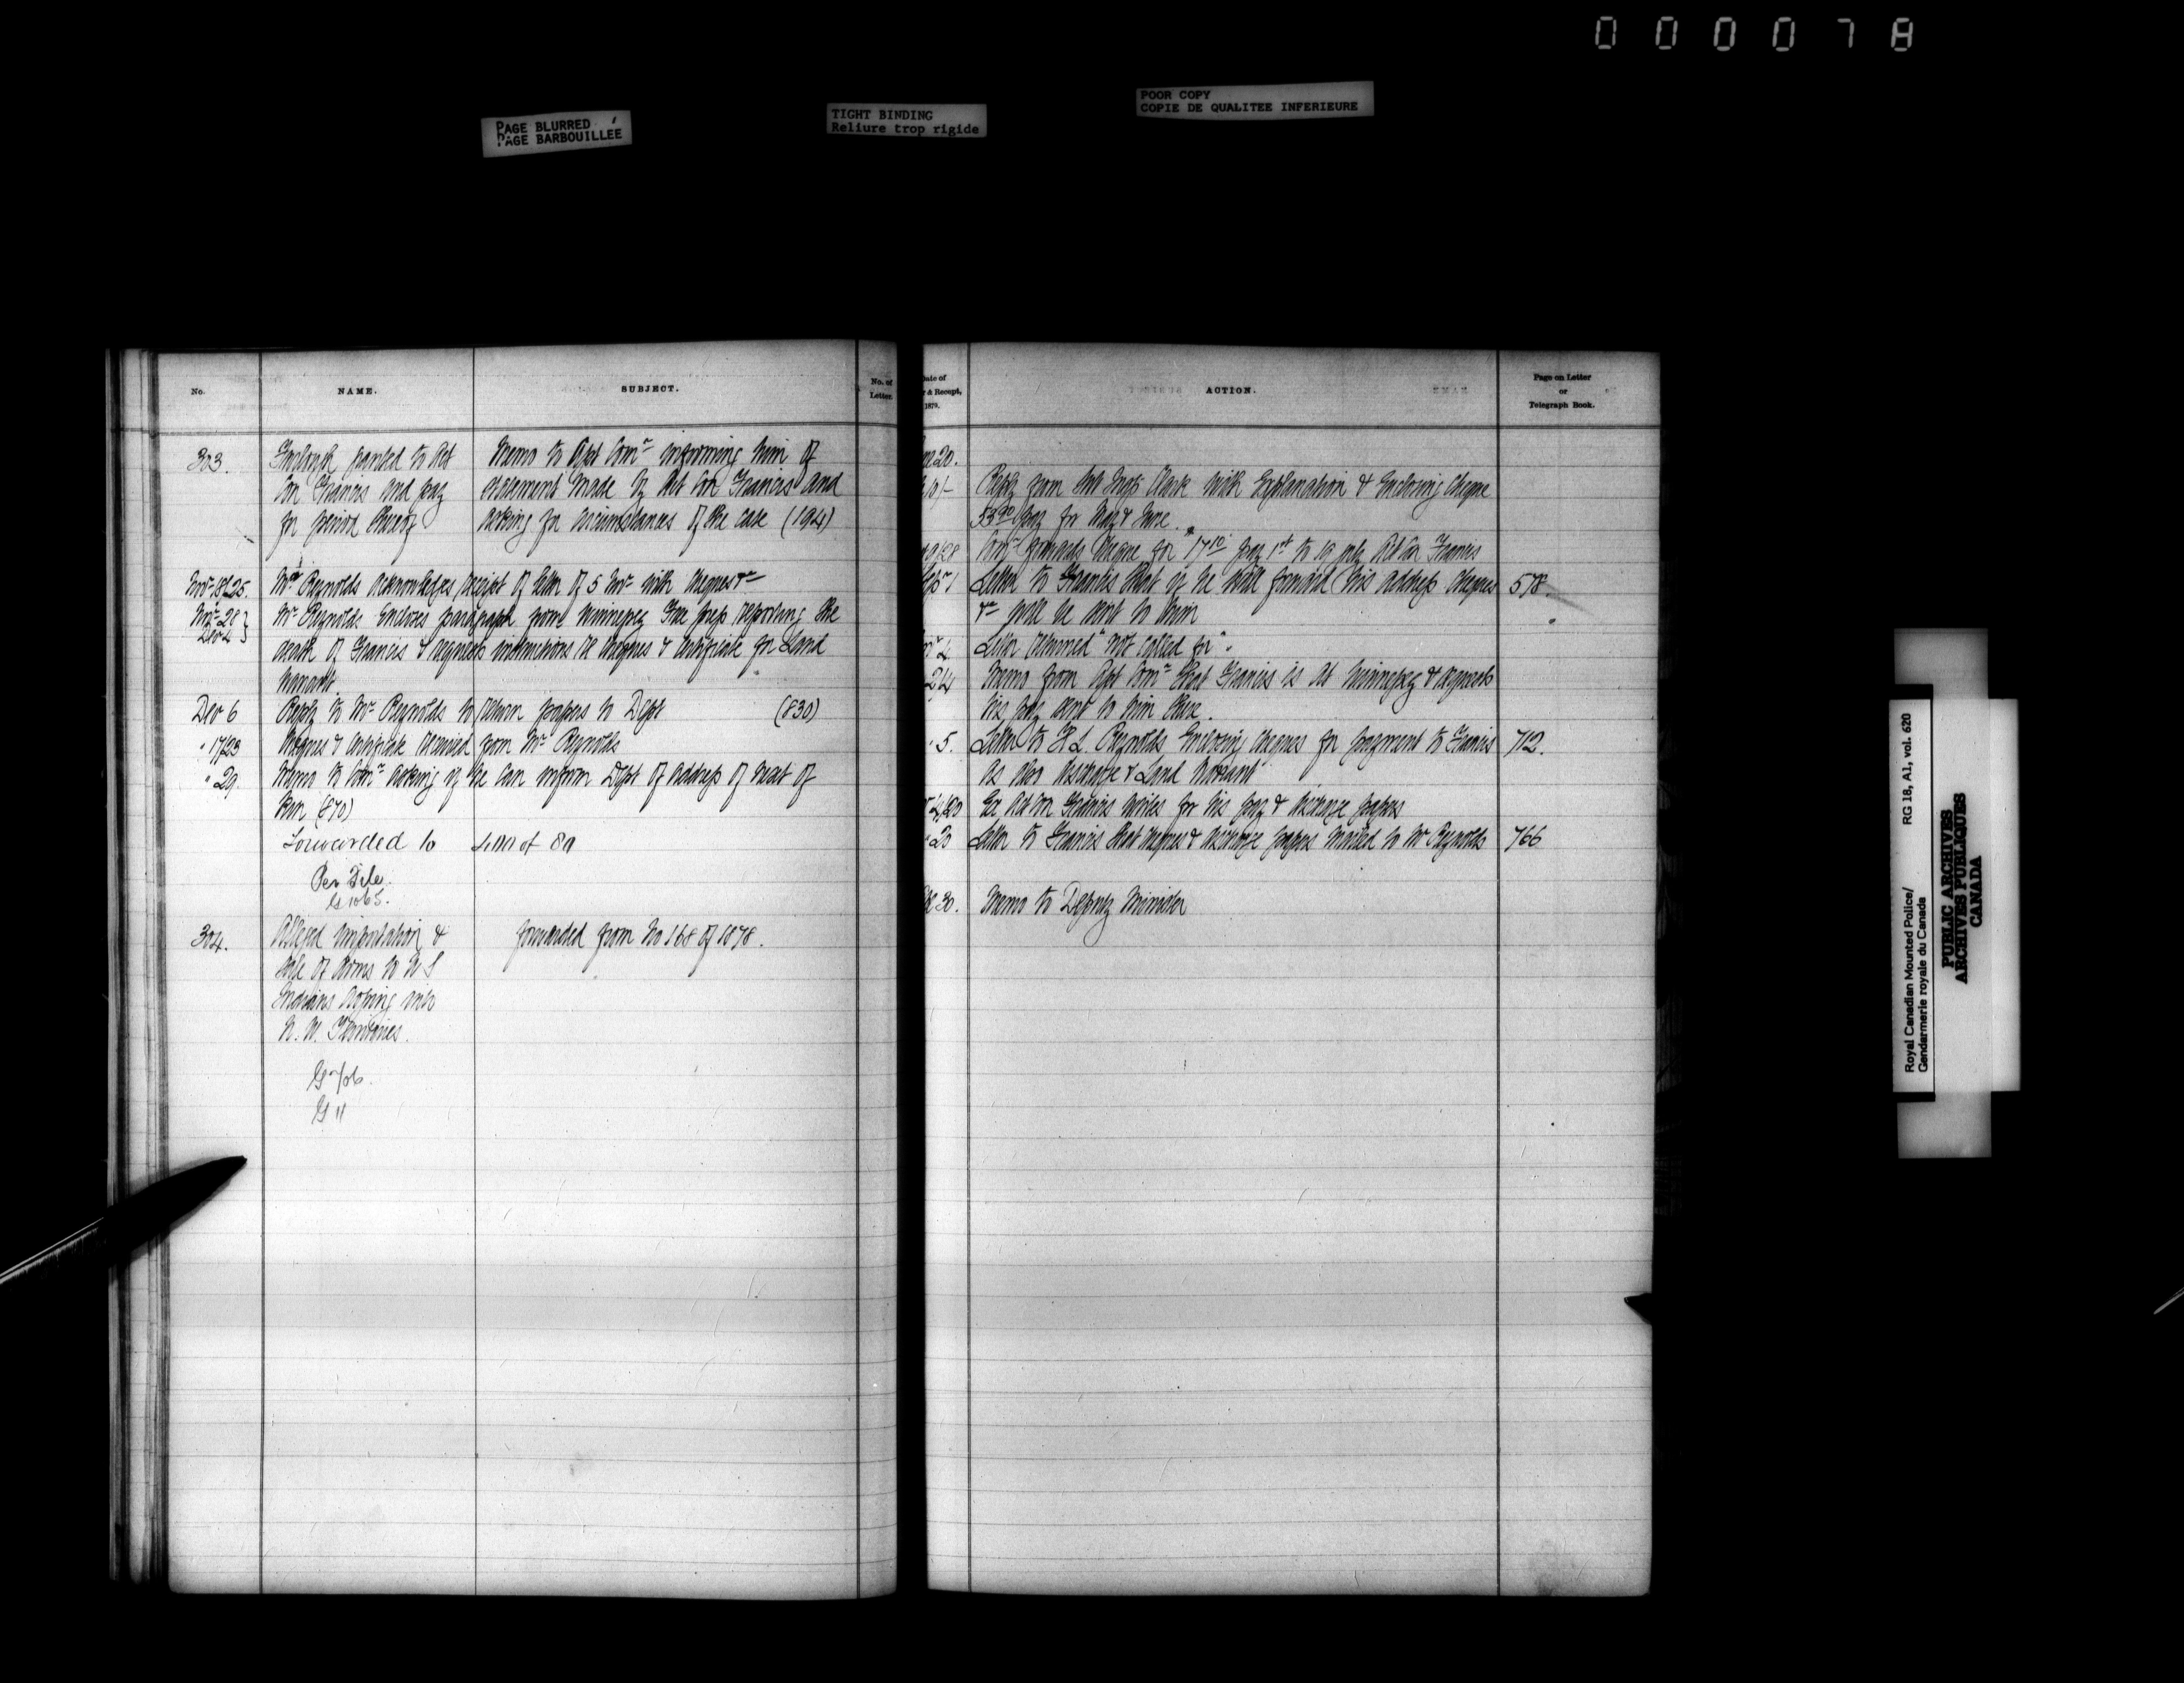 000078
PAGE BLURRED
PAGE BARBOUILLÉE
TIGHT BINDING
Reliure trop rigide
POOR COPY
COPIE DE QUALITEE INFERIEURE
No.
NAME.
SUBJECT.
No. of
Letter.
303.
Furlough granted to Act
Con Francis and pay
for period thereof
Memo to Asst Comr informing him of
statement made by Act Con Francis and
asking for circumstances of the case (194)
Novr 18/25. Mr Reynolds acknowledges receipt of letter of 5 Novr with cheques &c
Novr 28
Dec 4
Mr Reynolds encloses paragraph from Winnipeg Free Press reporting the
death of Francis & requests instructions re cheques & certificate for Land
Warrant.
Dec 6 Reply to Mr Reynolds to return papers to Dept (830)
" 17/23 Cheques & Certificate received from Mr Reynolds
" 29. Memo to Comr asking if he can inform Dept of address of next of
Kin (870)
Forwarded to of 80
Per File
G 1065.
304.
Alleged importation &
sale of Arms to U S
Indians crossing into
N. W. Territories.
forwarded from No 168 of 1878.
G 706.
G 11
Date of
& Receipt,
1879.
ACTION.
Page on Letter
or
Telegraph Book.
20.
Reply from Sub Inspr Clark with Explanation & Enclosing Cheque
53.90 pay for May & June.
Comr forwards cheque for $17.10 pay 1st to 19 July Act Con Francis
Sepr 1 Letter to Francis that if he will forward his address cheques 578.
&c will be sent to him
4 Letter returned "not called for".
24 Memo from Asst Comr that Francis is at Winnipeg & requests
his pay sent to him there.
" 5. Letter to H L. Reynolds Enclosing cheques for payment to Francis 712.
as also discharge & Land Warrant
Ex Act Con Francis writes for his pay & discharge papers
" 20 Letter to Francis that cheques & discharge papers mailed to Mr Reynolds 766
30. Memo to Deputy Minister
Royal Canadian Mounted Police/
Gendarmerie royale du Canada
RG 18, A1, vol. 620
PUBLIC ARCHIVES
ARCHIVES PUBLIQUES
CANADA